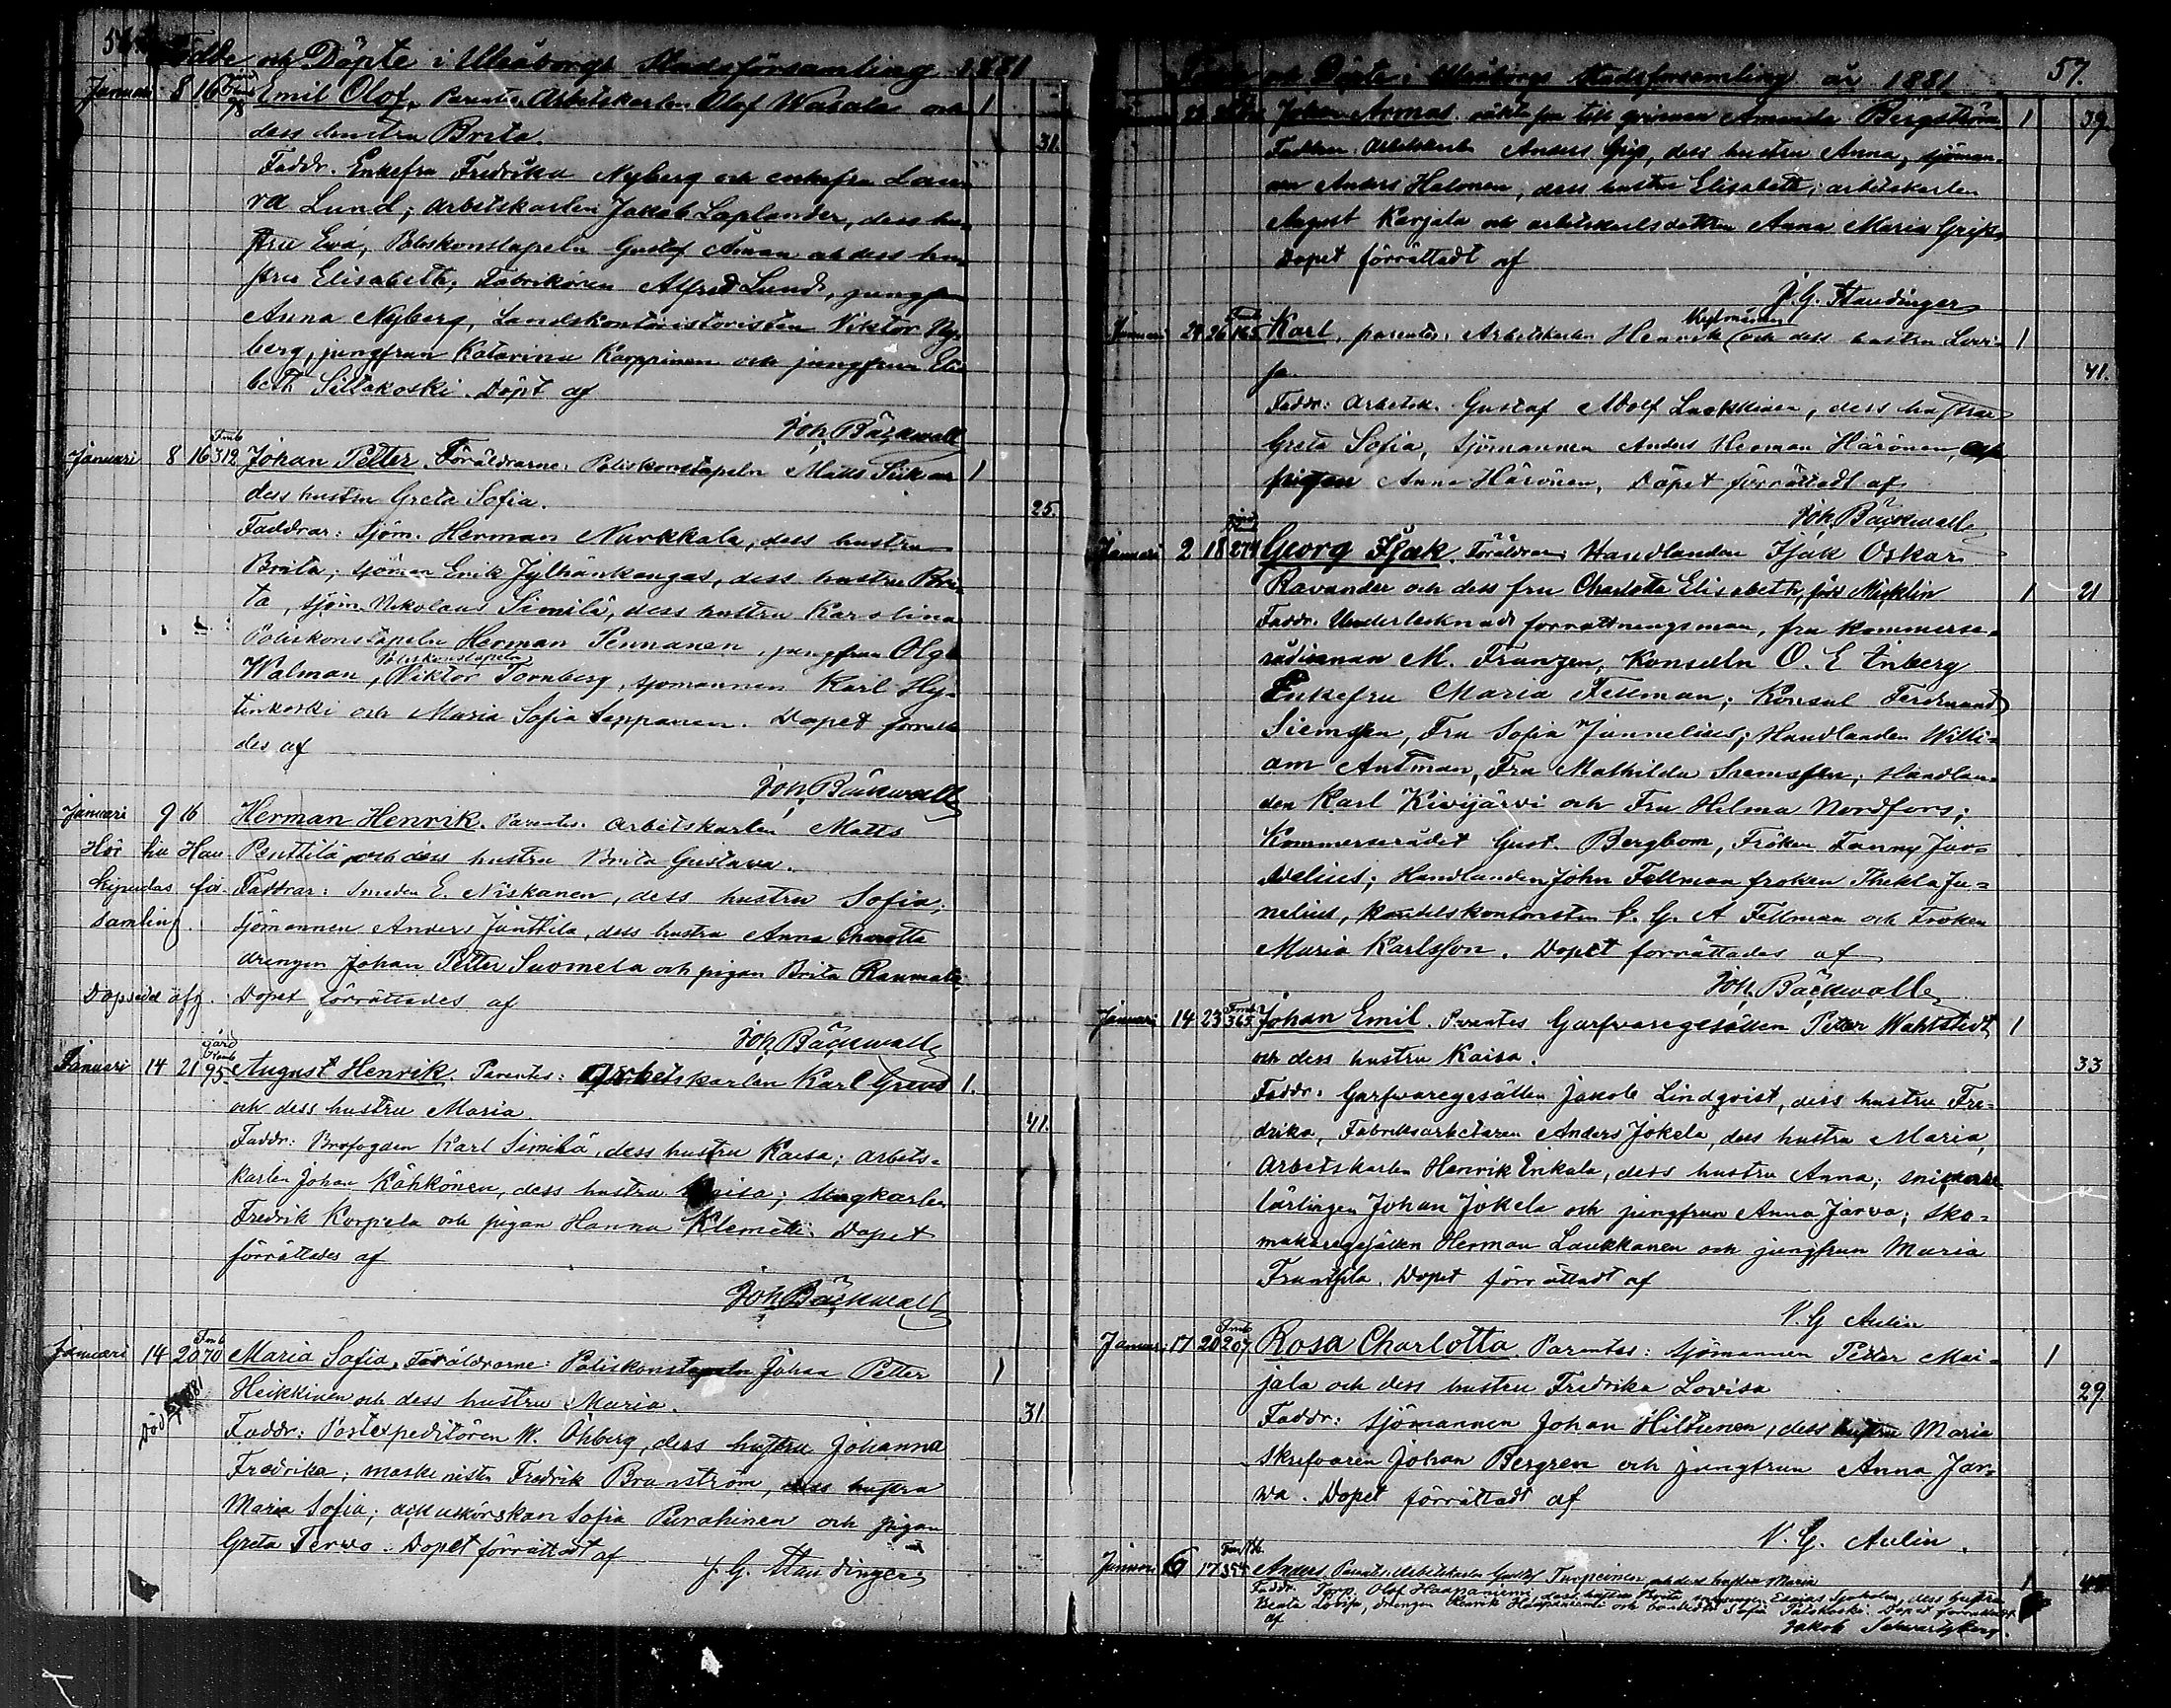 Födde och Döpte i Uleåborgs Stadsförsamling 1881
Januari 8 16 Emil Olof, Parentes Arbetskarlen Olof Wasala och 1
dess hustru Brita. 31.
Faddr. Enkefru Fredrika Nyberg och enkefru Lau-
ra Lund; arbetskarlen Jakob Laplander, dess hu-
stru Eva, Poliskonstapeln Gustaf Åman och dess hu-
stru Elisabeth, Fabrikören Alfred Lund, jungfru
Anna Nyberg, Landskontoristoristen Viktor Ny-
berg, jungfrun Katarina Karppinen och jungfrun Eli-
beth Siltakoski. Döpt af
Joh. Bäckwall
Januari 8 16 Fmb 312 Johan Petter. Föräldrarne: Poliskonstapeln Matts Siik och 1
dess hustru Greta Sofia. 25.
Faddrar: Sjöm. Herman Nurkkala, dess hustru
Brita; sjöman Erik Jylhänkangas, dess hustru Bri-
ta, sjöm. Nikolaus Similä, dess hustru Karolina
Poliskonstapeln Herman Pennanen, jungfrun Olga
Walman, Poliskonstapeln Viktor Tornberg, sjömannen Karl Hy-
tinkoski och Maria Sofia Seppänen. Dopet förrätta
des af
Joh. Bäckwall
Januari 9 16 Herman Henrik. Parentes. arbetskarlen Matts
Hör till Hau Penttilä och dess hustru Brita Gustava.
kipudas för- Faddrar: Smeden E. Niskanen, dess hustru Sofia;
samling. sjömannen Anders Jänttilä, dess hustru Anna Charlotta
drengen Johan Petter Suomela och pigan Brita Raumala.
Dopsedel afg. Dopet förrättades af
Joh. Bäckwall
Januari 14 21 gård 95 August Henrik. Parentes: Arbetskarlen Karl Grend 1.
och dess hustru Maria. 41.
Faddr: Brofogden Karl Similä, dess hustru Kaisa; arbets-
karlen Johan Kähkönen, dess hustru Kaisa; Ungkarlen
Fredrik Korpela och pigan Hanna Klemeti. Dopet
förrättades af
Joh. Bäckwall
Januari 14 20 Fmb 70 Maria Sofia, Föräldrarne: Poliskonstapeln Johan Petter 1
Heikkinen och dess hustru Maria. 31
Faddr: Postexpeditören W. Öhberg, dess hustru Johanna
Fredrika; maskinisten Fredrik Branström, dess hustru
Maria Sofia; ackuschörskan Sofia Purahinen och pigan
Greta Terwo. Dopet förrättadt af
J. G. Staudinger
Födde och Döpte i Uleåborgs Stadsförsamling år 1881 57.
Johan Armas. oäkta son till qvinnan Amanda Bergström 1 39.
Faddrar. Arbetskarlen Anders Grip, dess hustru Anna, sjöman-
nen Anders Halonen, dess hustru Elisabeth; arbetskarlen
August Karjala och arbetskarlsdottren Anna Maria Grip.
Dopet förrättadt af
J. G. Staudinger
Januari 24 26 Fmb 165 Karl. parentes. Arbetskarlen Henrik och dess hustru Lovi- 1
sa. 41.
Faddr: Arbetsk. Gustaf Adolf Laakkinen, dess hustru
Greta Sofia, Sjömannen Anders Herman Härönen,
pigan Anna Härönen, Dopet förrättadt af
Joh. Bäckwall
Januari 2 18 274 Georg Isak. Föräldrar: Handlanden Isak Oskar
Ravander och dess fru Charlotta Elisabeth, född Micklin 1 21
Faddr. Undertecknad förrättningsman, fru kommerse-
rådinnan M. Franzen, Konsuln O. E. Enberg
Enkefru Maria Fellman; Konsul Ferdinand
Siemssen, Fru Sofia Junnelius; Handlanden Willi-
am Antman, Fru Mathilda Siemssen; Handlan-
den Karl Kivijärvi och Fru Hilma Nordfors;
Kommerserådet Gust. Bergbom, Fröken Fanny Ju-
nelius; Handlanden John Fellman fröken Thekla Ju-
nelius, handelskontoristen C. G. A Fellman och Fröken
Maria Karlsson. Dopet förrättades af
Joh. Bäckwall
Januari 14 23 Fmb 365 Johan Emil. Parentes Garfvaregesällen Petter Wahlstedt 1
och dess hustru Kaisa. 33
Faddr: Garfvaregesällen Jakob Lindqvist, dess hustru Fre-
drika, Fabriksarbetaren Anders Jokela, dess hustru Maria,
Arbetskarlen Henrik Erkkala, dess hustru Anna; snickare
lärlingen Johan Jokela och jungfrun Anna Jarva; sko-
makaregesällen Herman Laukkanen och jungfrun Maria
Frantsila. Dopet förrättadt af
N. G. Aulin
Januari 17 20 Fmb 207 Rosa Charlotta. Parentes: sjömannen Petter Mai- 1
jala och dess hustru Fredrika Lovisa 29.
Faddr: sjömannen Johan Hiltunen, dess hustru Maria
Skrefvaren Johan Bergren och jungfrun Anna Jar-
wa. Dopet förrättadt af
N. G. Aulin.
Januari 6 17 354 Anders. Parentes. Arbetskarlen Gustaf Turpeinen och dess hustru Maria 1
Faddr. Torp. Olof Haapaniemi, dess hustru Brita, Esaias Sjöholm, dess hustru
Beata Lovisa, drengen Henrik Haapaniemi och Sofia Palokoski. Dopet förrättadt
af Jakob Schwartzberg.